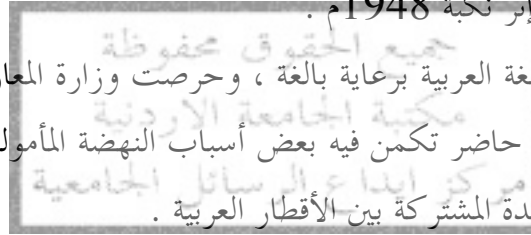 إثر نكبة 1948م .
جميع الحقوق محفوظة
غة العربية برعاية بالغة ، وحرصت وزارة المعار
مكتبة الجامعة الاردنية
حاضر تكمن فيه بعض أسباب النهضة المأمولة
مركز ايداع الرسائل الجامعية
دة المشتركة بين الأقطار العربية .